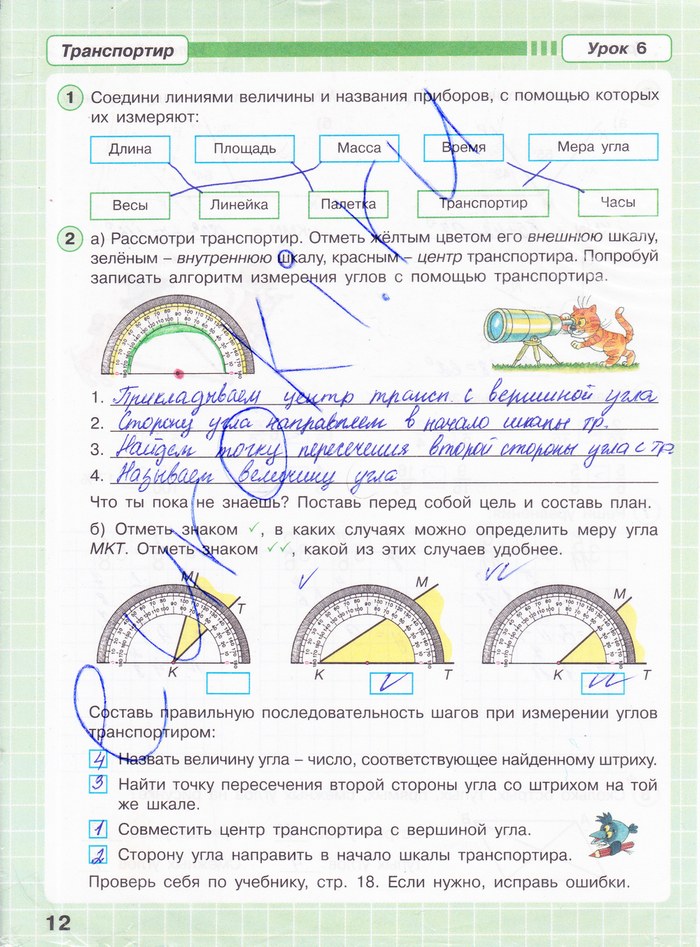 Транспортир
Урок 6
1 Соедини линиями величины и названия приборов, с помощью которых
их измеряют:
Длина Площадь Масса Время Мера угла
Весы Линейка Палетка Транспортир Часы
2 а) Рассмотри транспортир. Отметь жёлтым цветом его внешнюю шкалу,
зелёным – внутреннюю шкалу, красным – центр транспортира. Попробуй
записать алгоритм измерения углов с помощью транспортира.
1. Прикладываем центр трансп. с вершиной угла
2. Сторону угла направляем в начало шкалы тр.
3. Найдем точку пересечения второй стороны угла с тр.
4. Называем величину угла
Что ты пока не знаешь? Поставь перед собой цель и составь план.
б) Отметь знаком ✓, в каких случаях можно определить меру угла
МКТ. Отметь знаком ✓✓, какой из этих случаев удобнее.
М Т К
М К Т
М К Т
Составь правильную последовательность шагов при измерении углов
транспортиром:
4 Назвать величину угла – число, соответствующее найденному штриху.
3 Найти точку пересечения второй стороны угла со штрихом на той
же шкале.
1 Совместить центр транспортира с вершиной угла.
2 Сторону угла направить в начало шкалы транспортира.
Проверь себя по учебнику, стр. 18. Если нужно, исправь ошибки.
12